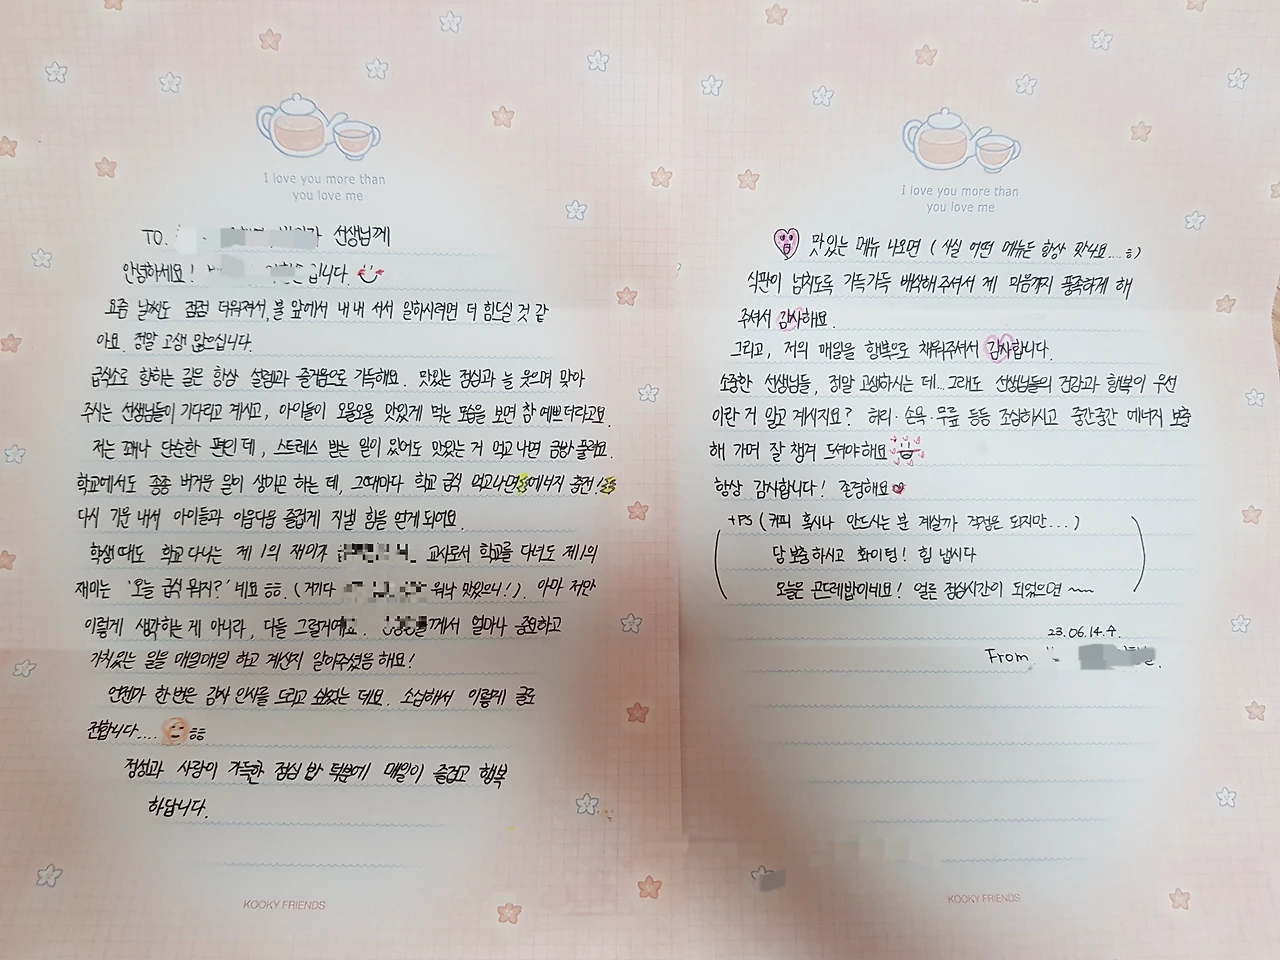 I love you more than
you love me
TO. 선생님께
안녕하세요! 입니다.
요즘 날씨도 점점 더워져서, 불 앞에서 내내 서서 일하시려면 더 힘드실 것 같
아요. 정말 고생 많으십니다.
급식소로 향하는 길은 항상 설렘과 즐거움으로 가득해요. 맛있는 점심과 늘 웃으며 맞아
주시는 선생님들이 기다리고 계시고, 아이들이 오물오물 맛있게 먹는 모습을 보면 참 예쁘더라고요.
저는 꽤나 단순한 편인데, 스트레스 받는 일이 있어도 맛있는 거 먹고 나면 금방 풀려요.
학교에서도 종종 버거운 일이 생기곤 하는데, 그때마다 학교 급식 먹고나면 에너지 충전!
다시 기운 내서 아이들과 아웅다웅 즐겁게 지낼 힘을 얻게 되어요.
학생 때도 학교 다니는 제 1의 재미가 교사로서 학교를 다녀도 제1의
재미는 '오늘 급식 뭐지?' 네요 ㅎㅎ. (거기다 워낙 맛있으니!). 아마 저만
이렇게 생각하는 게 아니라, 다들 그럴거예요. 께서 얼마나 중요하고
가치있는 일을 매일매일 하고 계신지 알아주셨음 해요!
언젠가 한 번은 감사 인사를 드리고 싶었는데요. 소심해서 이렇게 글로
전합니다.... ㅎㅎ
정성과 사랑이 가득한 점심 밥 덕분에 매일이 즐겁고 행복
하답니다.
KOOKY FRIENDS
I love you more than
you love me
맛있는 메뉴 나오면 (사실 어떤 메뉴든 항상 맛나요....ㅎ)
식판이 넘치도록 가득가득 배식해주셔서 제 마음까지 풍족하게 해
주셔서 감사해요.
그리고, 저의 매일을 행복으로 채워주셔서 감사합니다.
소중한 선생님들, 정말 고생하시는 데...그래도 선생님들의 건강과 행복이 우선
이란 거 알고 계시지요? 허리·손목·무릎 등등 조심하시고 중간중간 에너지 보충
해 가며 잘 챙겨 드셔야해요
항상 감사합니다! 존경해요
+PS (커피 혹시나 안드시는 분 계실까 걱정은 되지만...)
당 보충하시고 화이팅! 힘 냅시다
오늘은 곤드레밥이네요! 얼른 점심시간이 되었으면 ~~
23.06.14.수.
From.
KOOKY FRIENDS